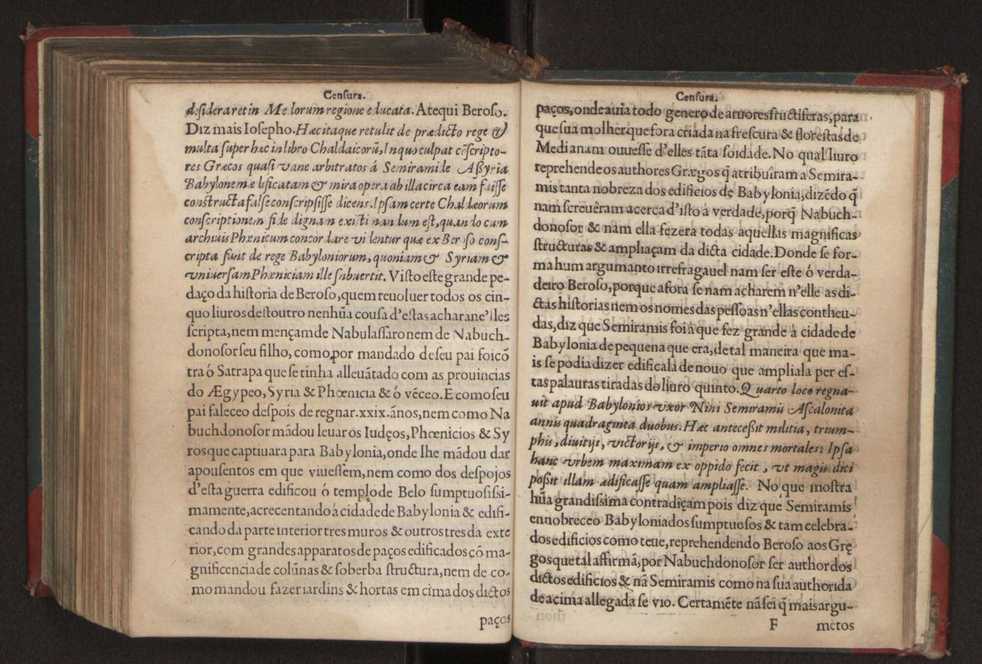 Censura.
desideraret in Medorum regione educata. Atequi Beroso.
Diz mais Iosepho. Hæc itaque retulit de prædicto rege &
multa super hæc in libro Chaldaicorũ, In quo culpat cõscripto-
res Græcos quasi vane arbitratos á Semiramide Aßyria
Babylonem ædificatam & mira opera ab illa circa eam fuisse
constructa false conscripsisse dicens. Ipsam certe Chaldæorum
conscriptionem fide dignam existimandum est, quando cum
archiuis Phœnicum concordare videntur quæ ex Beroso cons-
cripta sunt de rege Babyloniorum, quoniam & Syriam &
vniuersam Phœniciam ille subuertit. Visto este grande pe-
daço da historia de Beroso, quem reuoluer todos os cin-
quo liuros destoutro nenhũa cousa d'estas achara ne'lles
scripta, nem mençam de Nabulassaro nem de Nabuch-
donosor seu filho, como por mandado de seu pai foi cõ
tra ó Satrapa que se tinha alleuãtado com as prouincias
do Ægypto, Syria & Phœnicia & ó vẽceo. E como seu
pai faleceo despois de regnar .xxix. ános, nem como Na
buchdonosor mãdou leuar os Iudeos, Phœnicios & Sy
ros que captiuara para Babylonia, onde lhe mãdou dar
apousentos em que viuessem, nem como dos despojos
d'esta guerra edificou ó templo de Belo sumptuosissi-
mamente, acrecentando á cidade de Babylonia & edifi-
cando da parte interior tres muros & outros tres da exte
rior, com grandes apparatos de paços edificados cõ ma-
gnificencia de colũnas & soberba structura, nem de co-
mo mandou fazer iardins & hortas em cima dos dictos
paços
Censura.
paços, onde auia todo genero de aruores fructiferas, para
que sua molher que fora criada na frescura & florestas de
Media nam ouuesse d'elles tãta soidade. No qual liuro
reprehende os authores Grægos q̃ attribuîram a Semira-
mis tanta nobreza dos edificios de Babylonia, dizẽdo q̃
nam screuêram acerca d'isto á verdade, porq̃ Nabuch-
donosor & nam ella fezera todas aquellas magnificas
structuras & ampliaçam da dicta cidade. Donde se for-
ma hum argumanto irrefragauel nam ser este ó verda-
deiro Beroso, porque afora se nam acharem n'elle as di-
ctas historias nem os nomes das pessoas n'ellas contheu-
das, diz que Semiramis foi a que fez grande á cidade de
Babylonia de pequena que era, de tal maneira que ma-
is se podia dizer edificala de nouo que ampliala per es-
tas palauras tiradas do liuro quinto. Quarto loco regna-
uit apud Babylonios vxor Nini Semiramis Ascalonita
annis quadraginta duobus. Hæc antecessit militia, trium-
phis, diuitijs, victorijs, & imperio omnes mortales: Ipsa
hanc vrbem maximam ex oppido fecit, vt magis dici
possit illam ædificasse quam ampliasse. No que mostra
hũa grandissima contradiçam pois diz que Semiramis
ennobreceo Babylonia dos sumptuosos & tam celebra-
dos edificios como teue, reprehendendo Beroso aos Grę
gos que tal affirmã, por Nabuchdonosor ser author dos
dictos edificios & nã Semiramis como na sua authorida
de acima allegada se vio. Certamẽte nã sei q̃ mais argu-
F mẽtos